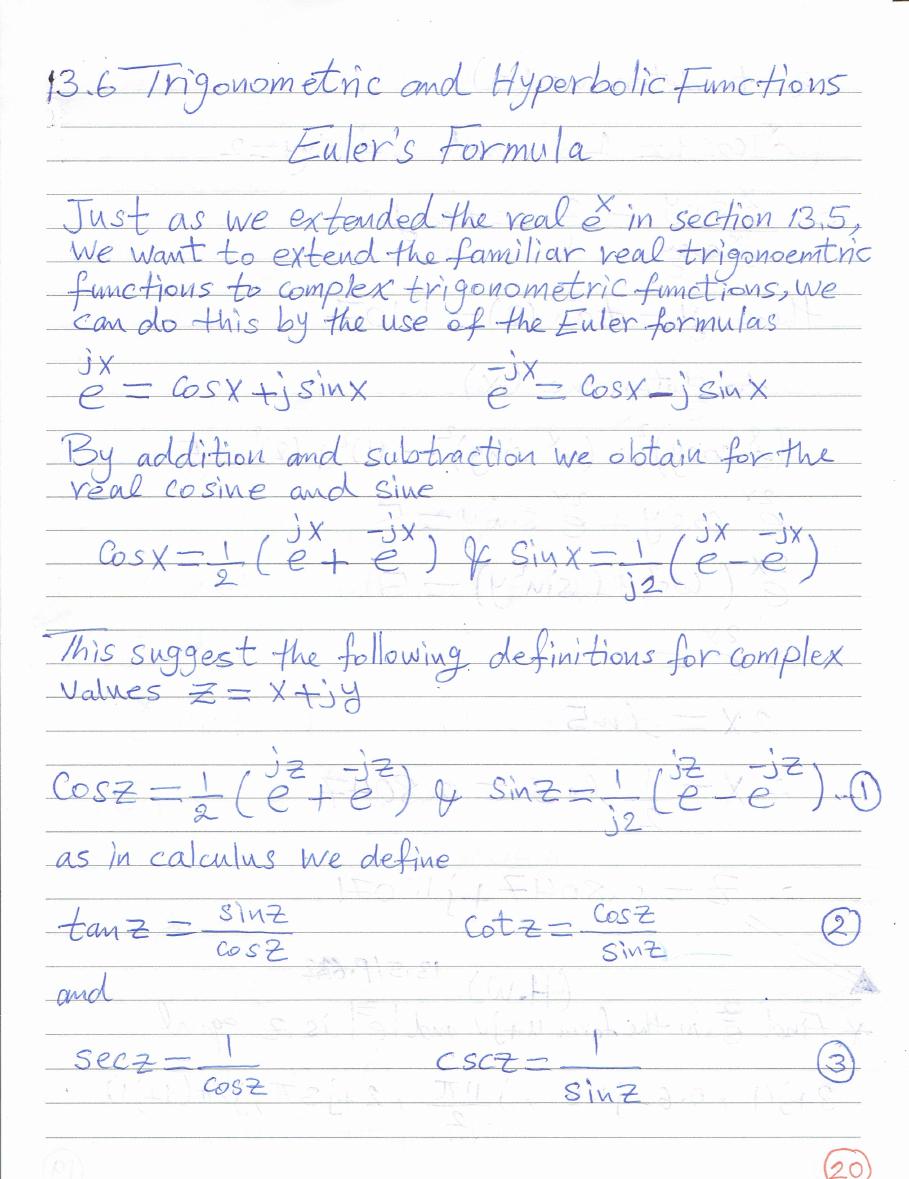 13.6 Trigonometric and Hyperbolic Functions
Euler's Formula
Just as we extended the real e^x in section 13.5,
we want to extend the familiar real trigonoemtric
functions to complex trigonometric functions, we
can do this by the use of the Euler formulas
e^jx = cosx + j sinx e^-jx = cosx - j sinx
By addition and subtraction we obtain for the
real cosine and sine
Cosx = 1/2 (e^jx + e^-jx) & Sinx = 1/j2 (e^jx - e^-jx)
This suggest the following definitions for complex
values z = x + jy
Cosz = 1/2 (e^jz + e^-jz) & Sinz = 1/j2 (e^jz - e^-jz) ..①
as in calculus we define
tanz = sinz/cosz Cotz = Cosz/Sinz ②
and
secz = 1/cosz cscz = 1/Sinz ③
20